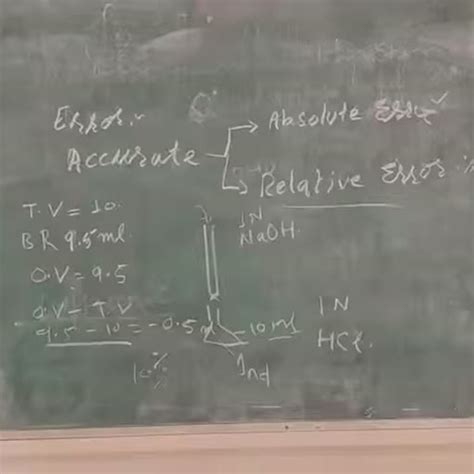 Error:-
Accurate
Absolute Error ✓
Relative Error
T.V = 10.
B R 9.5 ml.
O.V = 9.5
O.V - T.V
9.5 - 10 = - 0.5
1N
NaOH.
10 ml
1N
HCl.
Ind